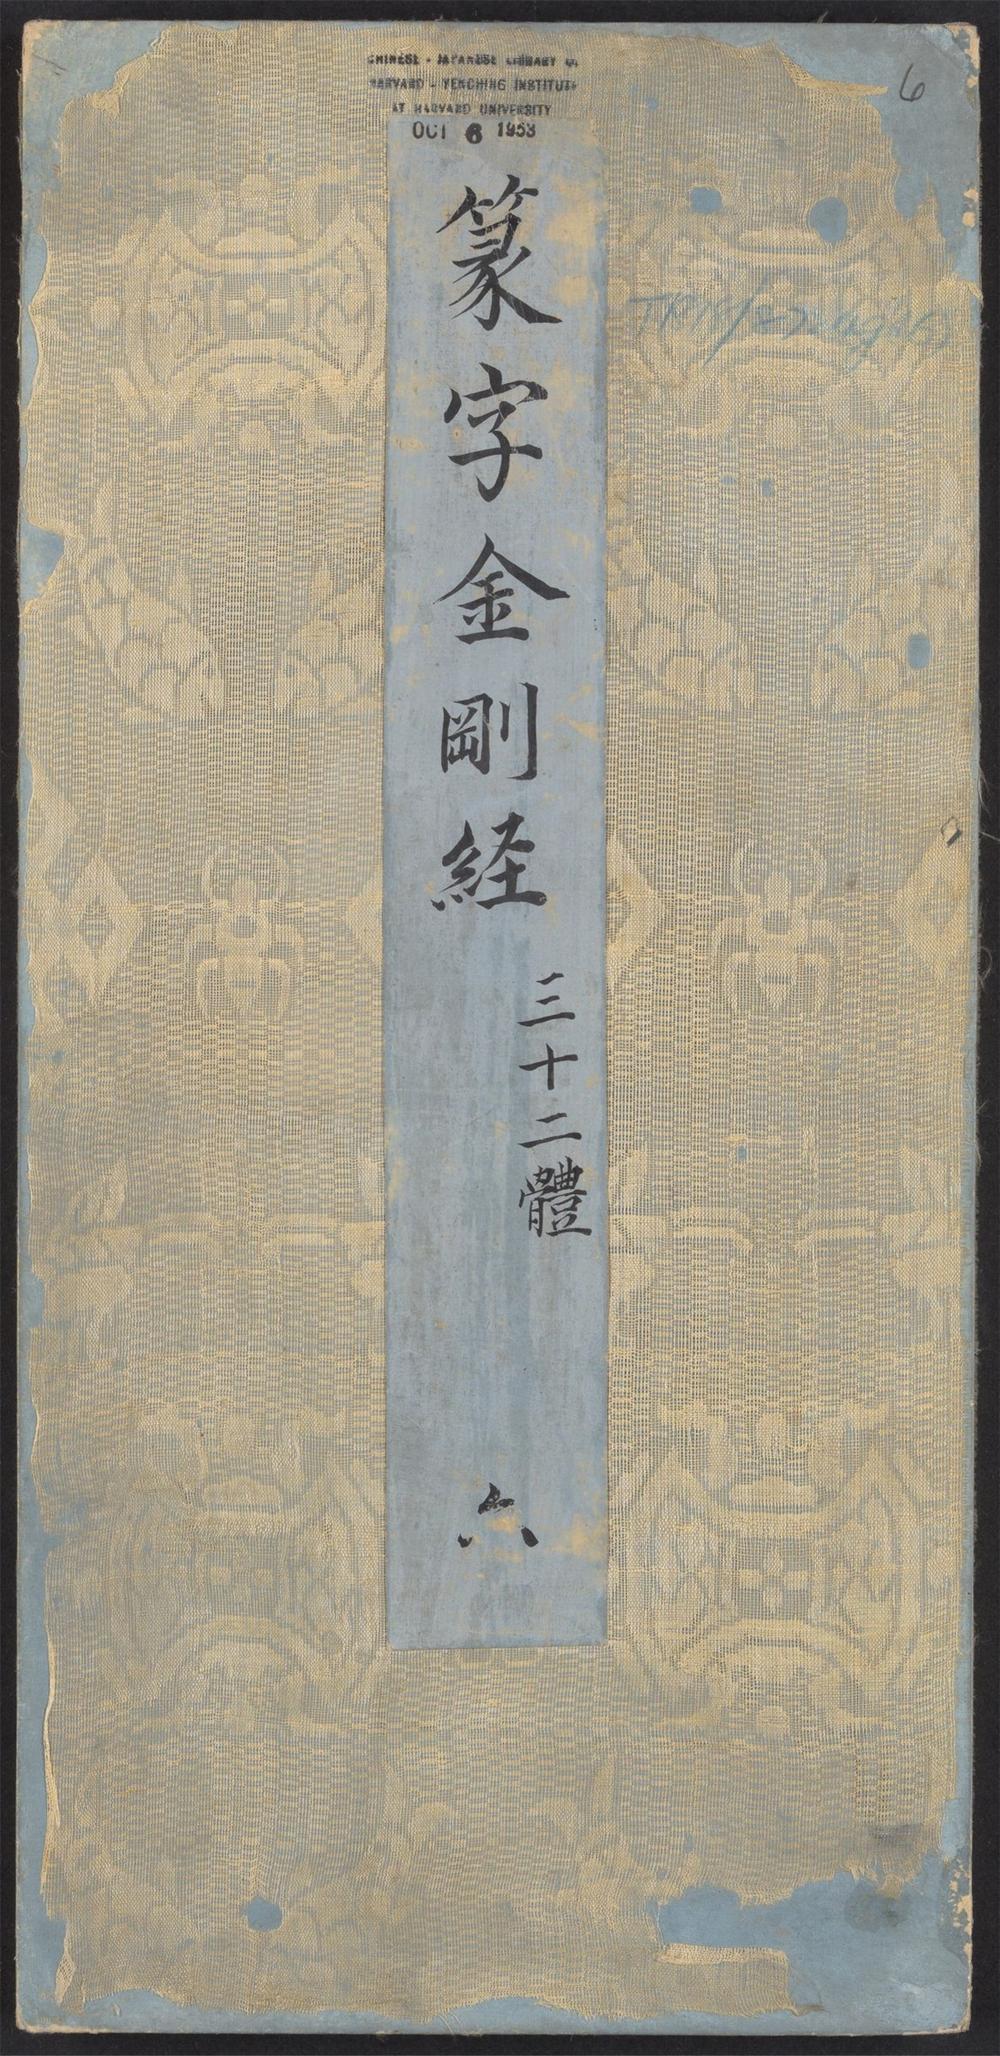 CHINESE - JAPANESE LIBRARY
HARVARD - YENCHING INSTITUTE
AT HARVARD UNIVERSITY
OCT 6 1953
6
篆字金剛経
三十二體
六